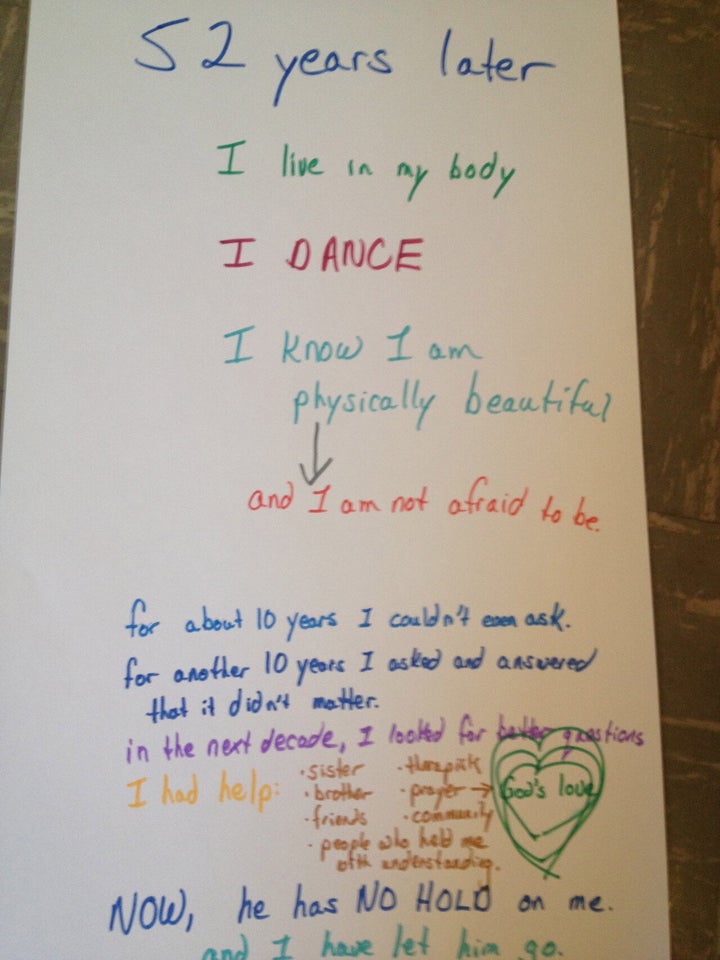 52 years later
I live in my body
I DANCE
I know I am
physically beautiful
and I am not afraid to be.
for about 10 years I couldn't even ask.
for another 10 years I asked and answered
that it didn't matter.
in the next decade, I looked for better questions
I had help:
· sister
· brother
· friends
· therapist
· prayer →
· community
· people who held me
with understanding.
God's love
NOW, he has NO HOLD on me.
and I have let him go.